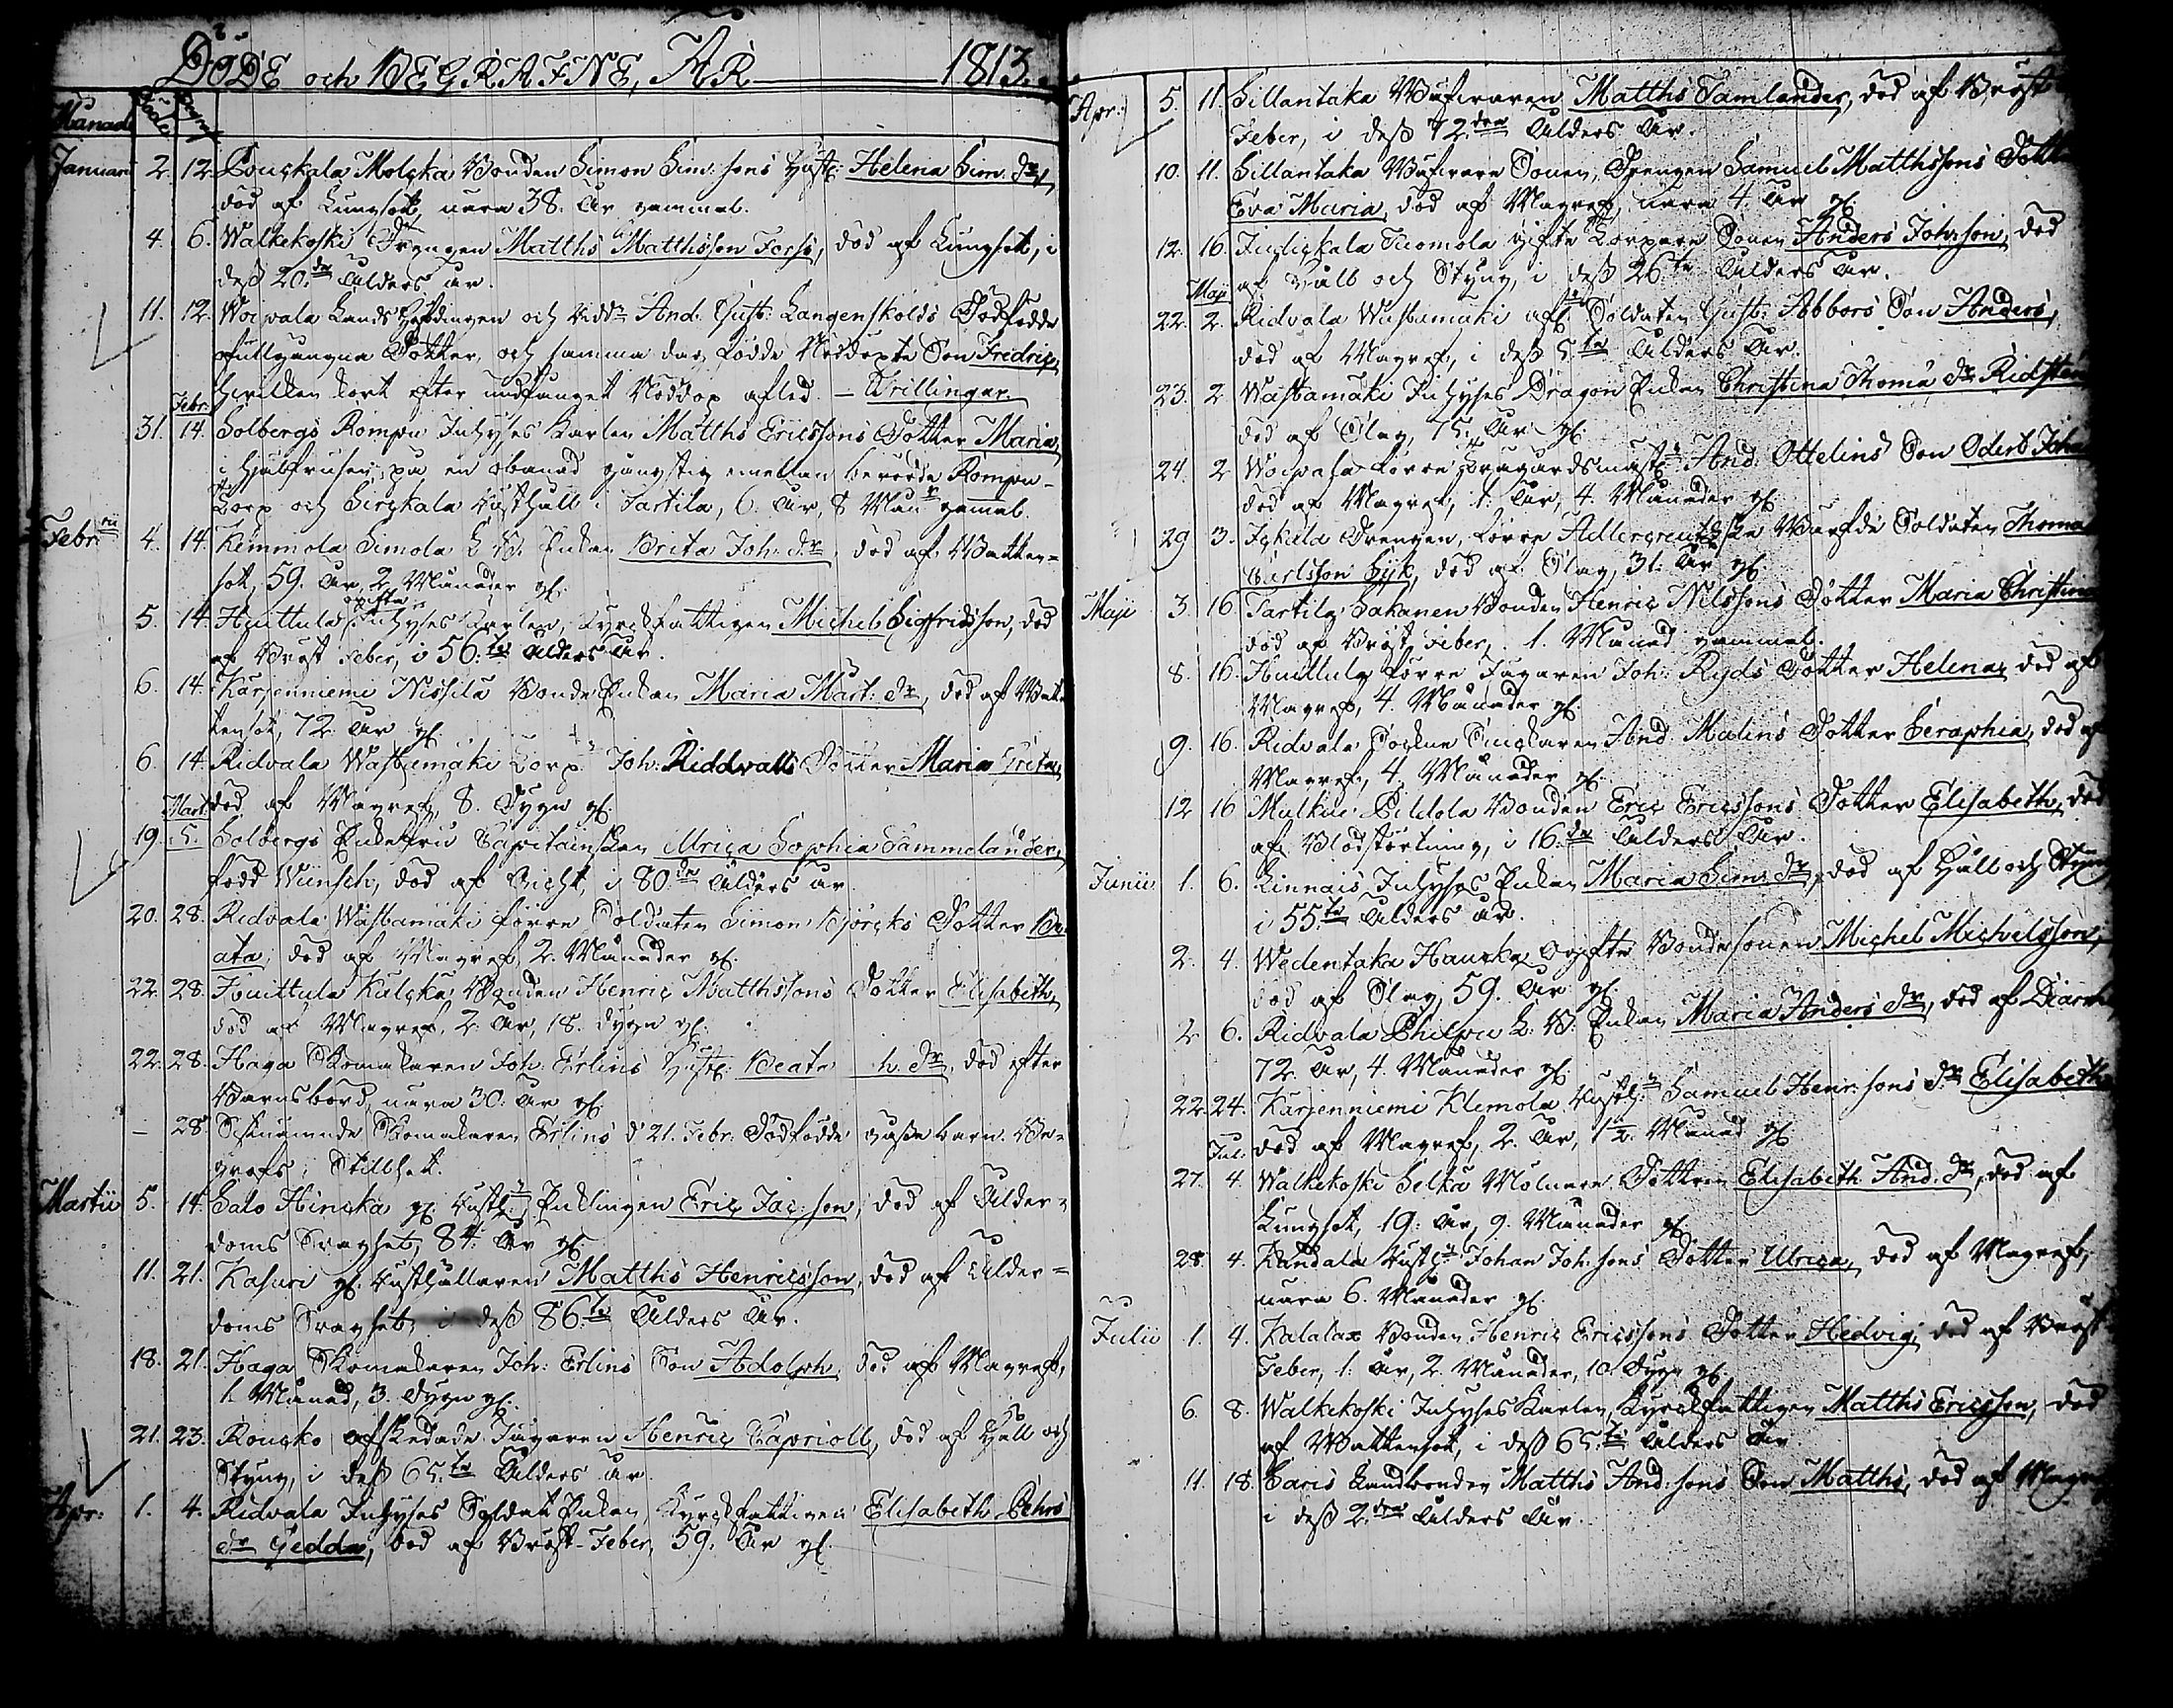 DÖDE och BEGRAFNE, ÅR 1813.
Månad Döde Begrafne
Januarii 2. 12. Pouckala Molcka Bonden Simon Sim: sons Hustr: Helena Sim: dr,
död af Lungsot, nära 38. År gammal.
4. 6. Walkekoski Drengen Matths Matthsson Forss, död af Lungsot, i
dess 20.de Ålders år.
11. 12. Woipala Landshöfdingen och Ridd:n And. Gust: Langenskölds Dödfödde
fullgångna Dotter, och samma dag födde Nöddöpte Son Fredric,
hvilken kort efter undfånget Nöddop afled. — Trillingar.
Febr.
31. 14. Solbergs Rompu Inhyses Karlen Matths Ericssons Dotter Maria,
ihjälfrusen, på en obanad gångstig emellan berörde Rompu-
Torp och Sirckala Rusthåll i Tarttila, 6. År, 8 Mån:r gamal.
Febr:rii 4. 14. Kemmola Simola E. B. Enkan Brita Joh: dr, död af Watten-
sot, 59. År, 2. Månader gl.
5. 14. Huittula ogifta Inhyses Karlen, Kyrckfattigen Michel Sigfridsson, död
af Bröst Feber, i 56:te Ålders År.
6. 14. Karjenniemi Nissilä Bonde Enkan Maria Mart: dr, död af Wat-
tensot, 72. År gl.
6. 14. Ridvala Wastamäki Torp:n Joh: Riddvalls Dotter Maria Greta,
död af Magref, 8. Dygn gl.
Mart.
19. 5. Solbergs Enkefru Capitainskan Ulrica Sophia Tammelander,
född Wunsch, död af Gickt, i 80.de Ålders år.
20. 28. Ridvala Wastamäki förre Soldaten Simon Björcks Dotter Be-
ata, död af Magref, 2. Månader gl.
22. 28. Huittula Kulcka Bonden Henric Matthssons Dotter Elisabeth,
död af Magref, 2. År, 18. dygn gl.
22. 28. Haga Skomakaren Joh: Erlins Hustr: Beata h. dr, död efter
Barnsbörd, nära 30. År gl.
— 28. Skomakaren Erlins d. 21. Febr: Dödfödde barn. Be-
grofs i Stillhet.
Martii 5. 14. Salo Hincka gl. Rusth:n Enklingen Eric Jac: son, död af Ålder-
doms Svaghet, 84. År gl.
11. 21. Kasuri gl. Rusthållaren Matths Henricsson, död af Ålder-
doms Svaghet, i dess 86.te Ålders År.
18. 21. Haga Skomakaren Joh: Erlins Son Adolph, död af Magref,
1. Månad, 3. dygn gl.
21. 23. Roucko afskedade Jägaren Henric Capriole, död af Håll och
Styng, i dess 65.te Ålders år.
Apr: 1. 4. Ridvala Inhyses Soldat Enkan, Kyrckfattigen Elisabeth Pehrs
dr Gedda, död af Bröst-Feber, 59. År gl.
Apr: 5. 11. Sillantaka Bufvaren Matths Tamlander, död af Bröst
Feber, i dess 72.dra Ålders År.
10. 11. Sillantaka Sonen, Drengen Samuel Matthssons Dotter
Eva Maria, död af Magref, nära 4. År gl.
12. 16. Tuomola gifte Torpare Sonen Anders Joh: son, död
af Håll och Styng, i dess 26.te Ålders År.
Maji
22. 2. Ridvala Wastamäki afl:ne Soldaten Gust: Abbors Son Anders,
död af Magref, i dess 5.te Ålders År.
23. 2 Wastamäki Inhyses Dragon Enkan Christina Thomæ dr Ridsten
död af Slag, 75. År gl.
24. 2 Woipala förre Trägårdsmäst:n And. Ottelins Son Odert Joh
död af Magref, 1. År, 4. Månader gl.
29 3. Drengen, förre Adlercreutzska Soldaten Thomas
Carlsson Syk, död af Slag, 31. År gl.
Maji 3. 16. Tarttila Sakanen Bonden Henric Nilssons Dotter Maria Christina
död af Bröst Feber, 1. Månad gammal.
8. 16. Huittula förre Jägaren Joh: Ryds Dotter Helena, död af
Magref, 4. Månader gl.
9. 16. Ridvala Sockne Snickaren And. Malins Dotter Seraphia, död af
Magref, 4. Månader gl.
12 16 Mälkiä Bonden Eric Ericssons Dotter Elisabeth, död
af Blodstörtning, i 16.de Ålders År.
Junii 1. 6. Linnais Inhyses Enkan Maria Sim: dr, död af Håll och Styng
i 55.te Ålders år.
2. 4. Wedentaka Haucka ogifte Bondesonen Michel Michelsson,
död af Slag, 59. År gl.
2 6. Ridvala Philpu E. B. Enkan Maria Anders dr, död af Diarrhe
72. År, 4. Månader gl.
22. 24. Karjenniemi Klemola Rusth:n Samuel Henr: sons dr Elisabeth
död af Magref, 2. År, 1 1/2. Månad gl.
Jul.
27. 4 Walkekoski Selkä Mölnare Dottren Elisabeth And. dr, död af
Lungsot, 19. År, 9. Månader gl.
28. 4. Kandala Rusth:n Johan Joh: sons Dotter Ulrica, död af Magref,
nära 6. Månader gl.
Julii 1. 4. Kalalax Bonden Henric Ericssons Dotter Hedvig, död af Bröst
Feber, 1. År, 2. Månader, 10. Dygn gl.
6. 8. Walkekoski Inhyses Karlen, Kyrckfattigen Matths Ericsson, död
af Wattensot, i dess 65.te Ålders År
11. 18. Saris Landbonden Matths And: sons Son Matths, död af Magref
i dess 2.dra Ålders År.